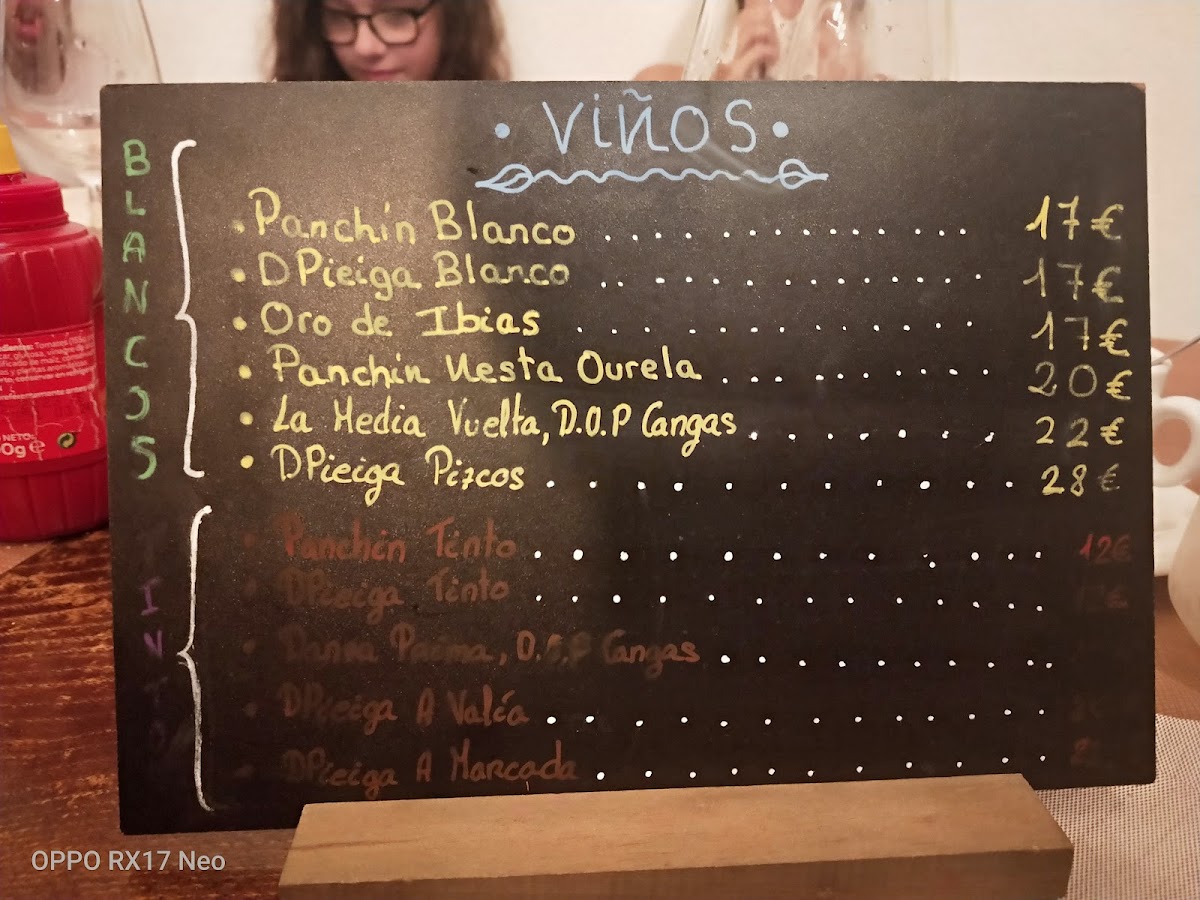 • ViÑOS •
BLANCOS
• Panchín Blanco . . . . . . . . . . . . . . 17€
• DPieiga Blanco . . . . . . . . . . . . . . 17€
• Oro de Ibias . . . . . . . . . . . . . 17€
• Panchín Nesta Ourela . . . . . . . . . . 20€
• La Media Vuelta, D.O.P Cangas . . . . . . . . . 22€
• DPieiga Pizcos . . . . . . . . . . . . 28€
TINTO
• Panchín Tinto . . . . . . . . . . . . . 12€
• DPieiga Tinto . . . . . . . . . . . . .
• Danna Paima, D.O.P Cangas . . . . . . . . . .
• DPieiga A Valía . . . . . . . . . . . .
• DPieiga A Marcada . . . . . . . . . . .
OPPO RX17 Neo